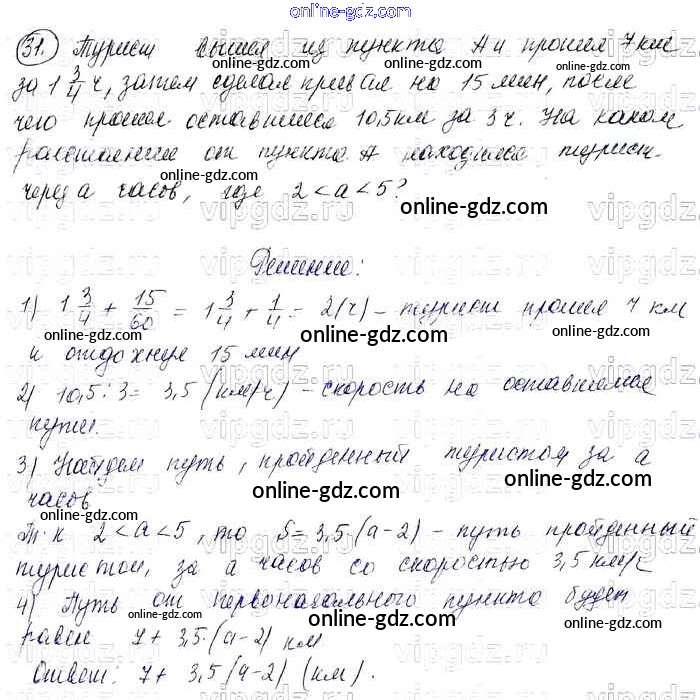 online-gdz.com
31. Турист вышел из пункта А и прошел 7 км
online-gdz.com
за 1 3/4 ч, затем сделал привал на 15 мин, после
чего прошел оставшиеся 10,5 км за 3 ч. На каком
расстоянии от пункта А находился турист
online-gdz.com
через a часов, где 2 < a < 5?
online-gdz.com
Решение:
1) 1 3/4 + 15/60 = 1 3/4 + 1/4 = 2 (ч) – турист прошел 7 км
online-gdz.com
и отдохнул 15 мин
online-gdz.com
2) 10,5 : 3 = 3,5 (км/ч) – скорость на оставшемся
online-gdz.com
пути.
3) Найдем путь, пройденный туристом за a
online-gdz.com
часов
online-gdz.com
Т. к 2 < a < 5, то S = 3,5·(a-2) – путь пройденный
online-gdz.com
туристом, за a часов со скоростью 3,5 км/ч
4) Путь от первоначального пункта будет
online-gdz.com
равен 7 + 3,5·(a-2) км
online-gdz.com
Ответ: 7 + 3,5(a-2) (км).
online-gdz.com